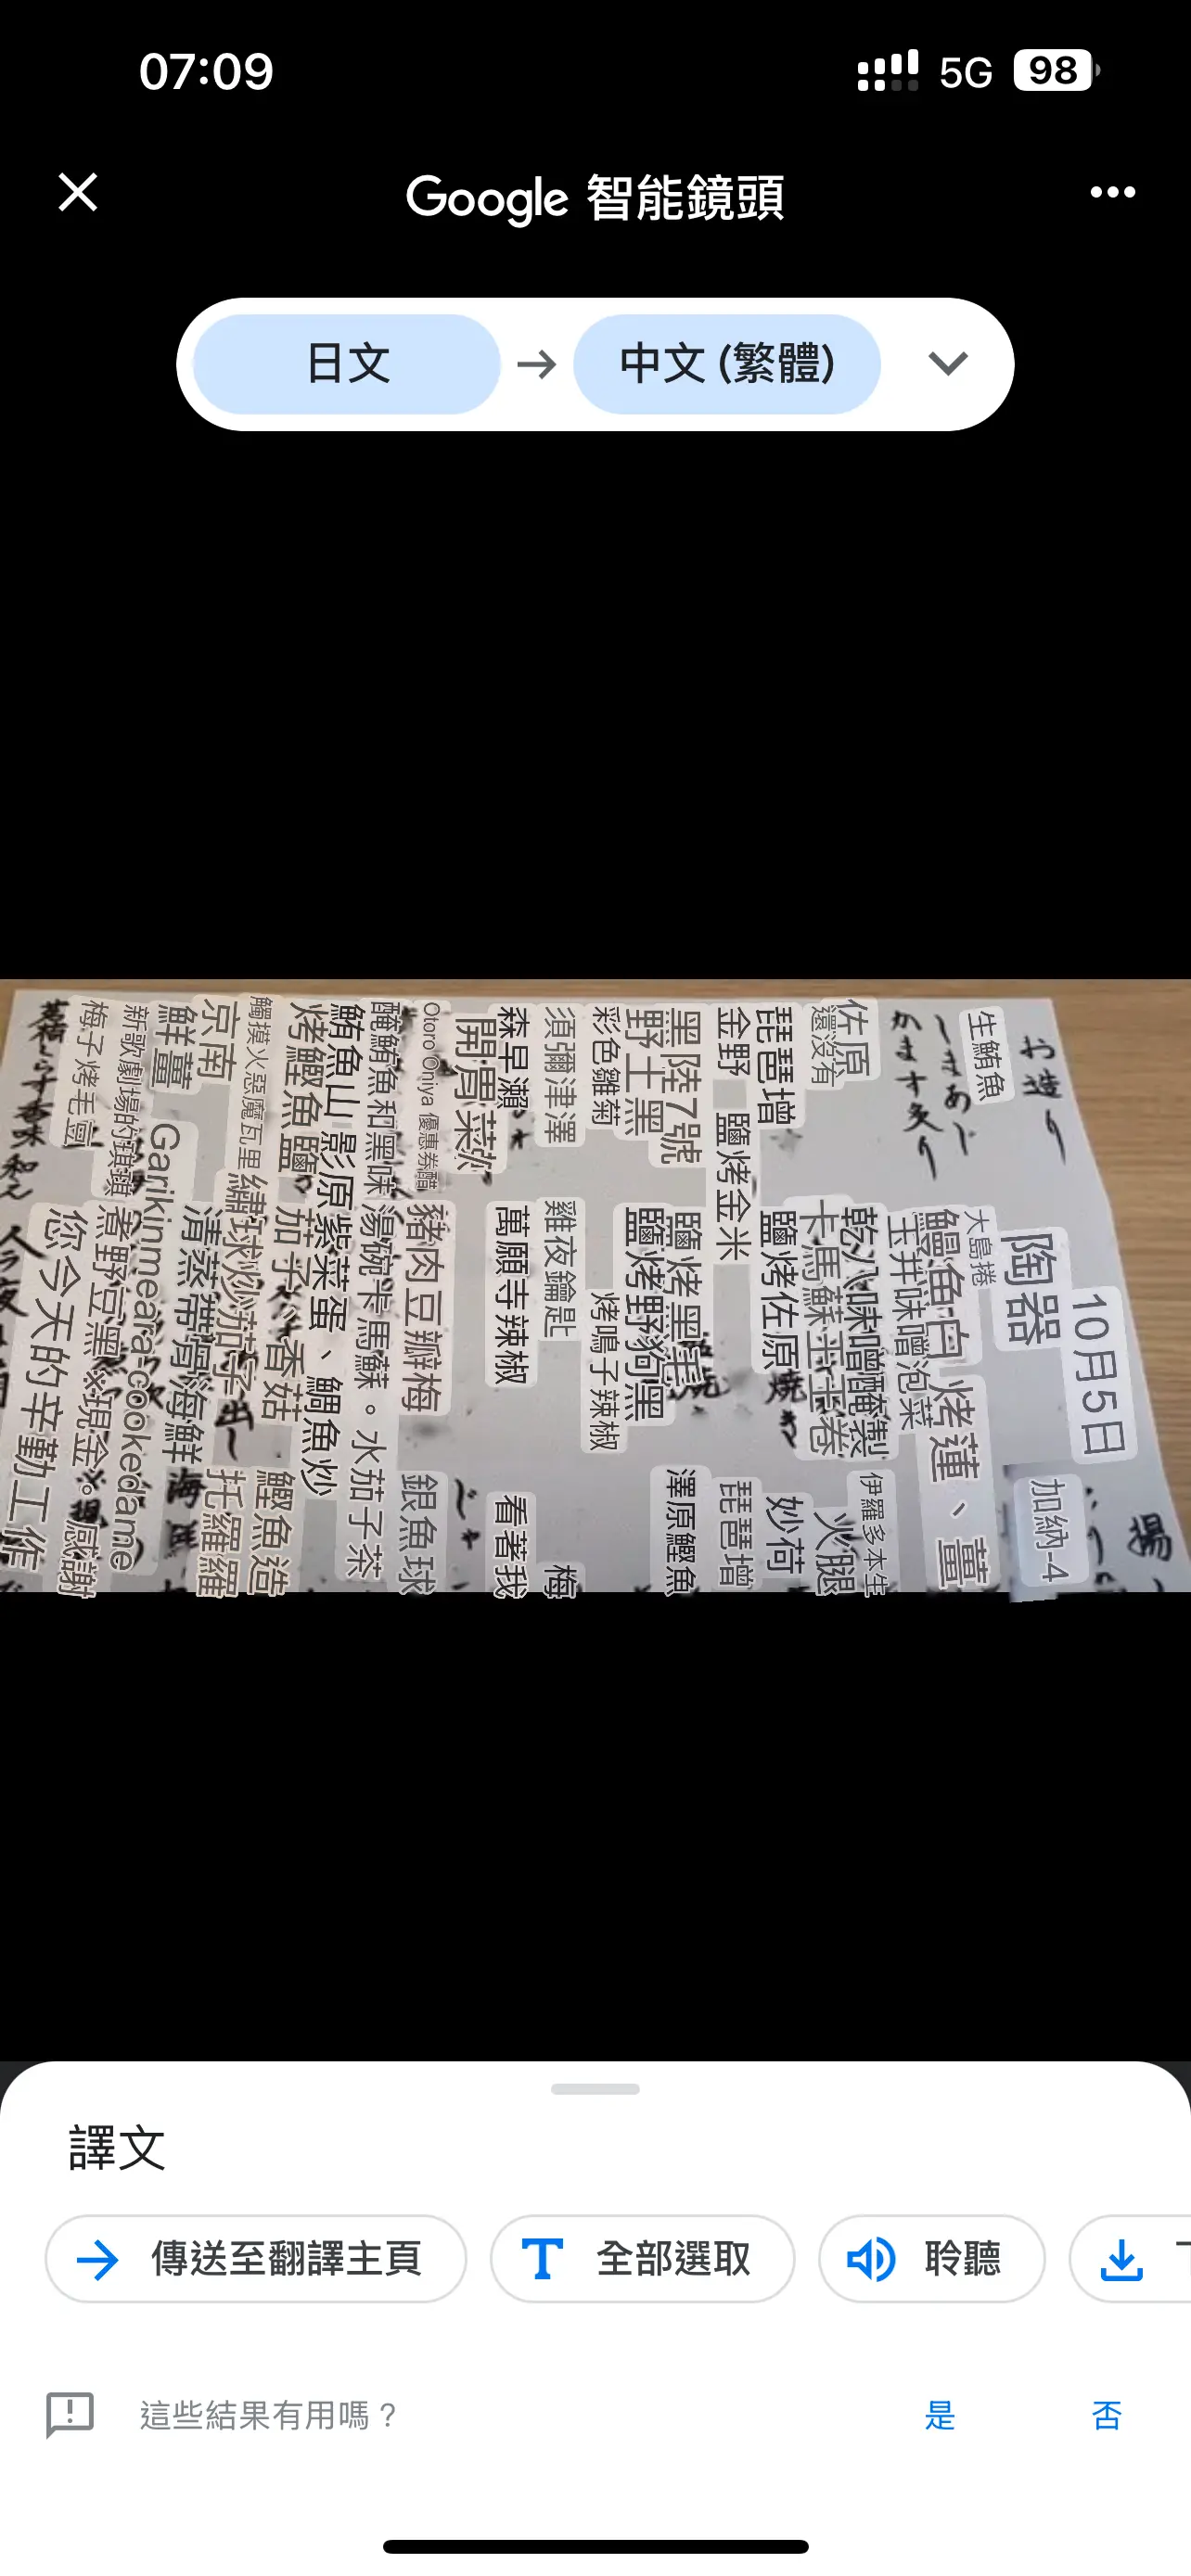 07:09
5G 98
Google 智能鏡頭
日文 → 中文 (繁體)
10月5日
お造り
陶器
加納-4
揚
生鮪魚
しまあじ
かます炙り
大島捲
鰻魚白烤蓮、薑
玉井味噌泡菜
佐原
還沒有
乾八味噌醃製
卡馬蘇玉平卷
伊羅多本生
火腿
琵琶增
鹽烤佐原
焼き
妙荷
金野
鹽烤金米
琵琶增
黑陸7號
鹽烤黑毛
澤原鰹魚
野土黑
鹽烤野狗黑
彩色雛菊
烤鳴子辣椒
須彌津澤
雞夜鑰匙
梅
森早瀨
萬願寺辣椒
看著我
開胃菜
Otoro Oniya 優惠券醋
豬肉豆瓣梅
銀魚球
醃鮪魚和黑味
湯碗卡馬蘇。水茄子茶
鮪魚山影原紫菜蛋、鯛魚炒
烤鰹魚鹽
茄子
香菇
鰹魚造
觸摸火惡魔瓦里
繡球炒茄子
出し
托羅羅
京南
清蒸帶骨海鮮
鮮薑
Garikinmeara-cookedame
新歌劇場的琪琪
煮野豆黑※現金。感謝
梅子烤毛豆
您今天的辛勤工作
茗荷とらす香味和え
譯文
傳送至翻譯主頁
全部選取
聆聽
這些結果有用嗎？
是
否